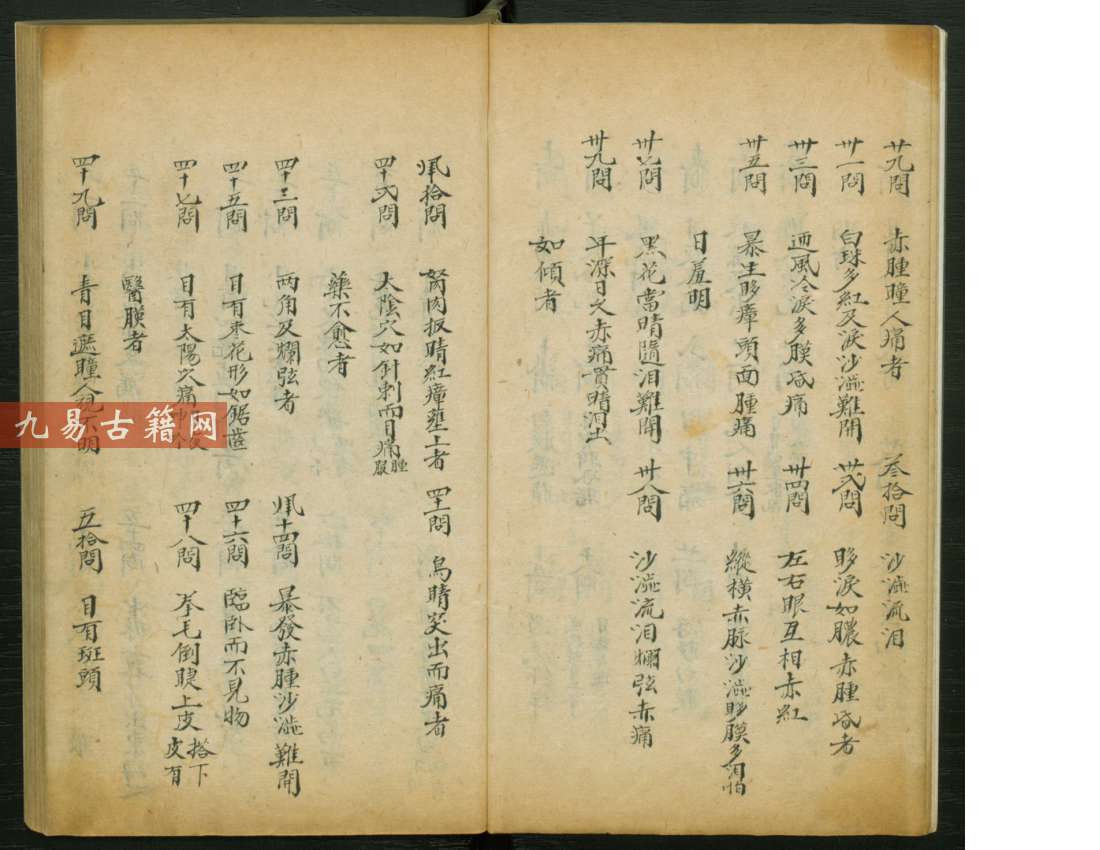 廿九問 赤腫瞳人痛者 叁拾問 沙澁流泪
卅一問 白珠多紅及淚沙澁難開 卅弍問 眵淚如膿赤腫昏者
卅三問 迎風冷淚多膜昏痛 卅四問 左右眼互相赤紅
卅五問 暴生眵瘴頭面腫痛 卅六問 縱橫赤脉沙澁眵膜多泪怕
日羞明
卅七問 黑花當睛隨泪難開 卅八問 沙澁流泪爛弦赤痛
卅九問 年深日久赤痛貫睛
如傾者
四拾問 胬肉扳睛紅瘴壅上者 四十一問 烏睛突出而痛者
四十弍問 太陰穴如針刺而目痛腫
藥不愈者
四十三問 兩角及爛弦者 四十四問 暴發赤腫沙澁難開
四十五問 目有枣花形如鋸齒 四十六問 臨卧而不見物
四十七問 目有太陽穴痛 四十八問 拳毛倒睫上皮搭下皮有
醫膜者
四十九問 青目遮瞳人 不明 五拾問 目有斑頭
九易古籍网